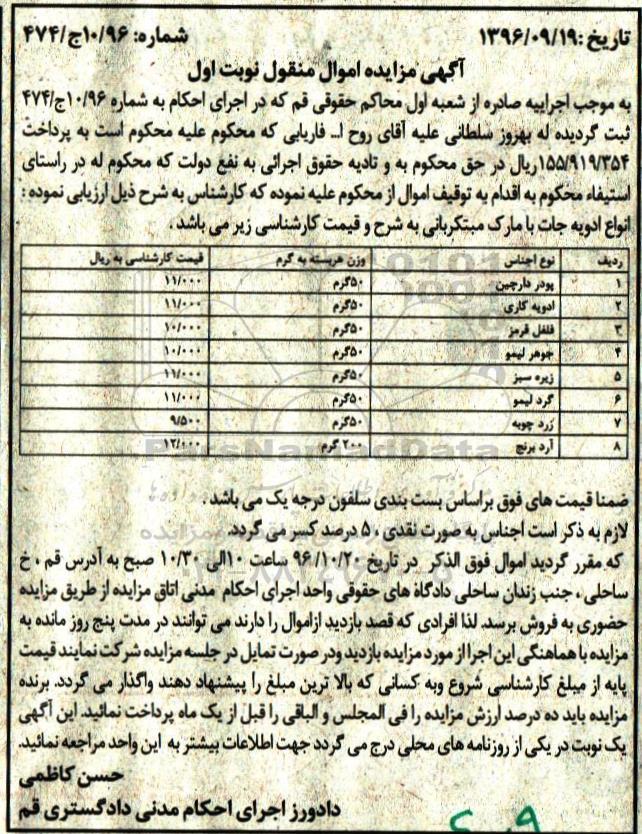 تاریخ :۱۳۹۶/۰۹/۱۹
شماره: ۱۰/۹۶ج/۴۷۴
آگهی مزایده اموال منقول نوبت اول
به موجب اجراییه صادره از شعبه اول محاکم حقوقی قم که در اجرای احکام به شماره ۱۰/۹۶ج/۴۷۴
ثبت گردیده له بهروز سلطانی علیه آقای روح ا... فاریابی که محکوم علیه محکوم است به پرداخت
۱۵۵/۹۱۹/۳۵۴ریال در حق محکوم به و تادیه حقوق اجرائی به نفع دولت که محکوم له در راستای
استیفاء محکوم به اقدام به توقیف اموال از محکوم علیه نموده که کارشناس به شرح ذیل ارزیابی نموده :
انواع ادویه جات با مارک مبتکربانی به شرح و قیمت کارشناسی زیر می باشد .
ردیف نوع اجناس وزن هربسته به گرم قیمت کارشناسی به ریال
۱ پودر دارچین ۵۰گرم ۱۱/۰۰۰
۲ ادویه کاری ۵۰گرم ۱۱/۰۰۰
۳ فلفل قرمز ۵۰گرم ۱۰/۰۰۰
۴ جوهر لیمو ۵۰گرم ۱۰/۰۰۰
۵ زیره سبز ۵۰گرم ۱۱/۰۰۰
۶ گرد لیمو ۵۰گرم ۱۱/۰۰۰
۷ زرد چوبه ۵۰گرم ۹/۵۰۰
۸ آرد برنج ۲۰۰ گرم ۱۲/۰۰۰
ParsNamadData
ضمنا قیمت های فوق براساس بست بندی سلفون درجه یک می باشد .
لازم به ذکر است اجناس به صورت نقدی ، ۵ درصد کسر می گردد.
که مقرر گردید اموال فوق الذکر در تاریخ ۹۶/۱۰/۲۰ ساعت ۱۰الی ۱۰/۳۰ صبح به آدرس قم ، خ
ساحلی ، جنب زندان ساحلی دادگاه های حقوقی واحد اجرای احکام مدنی اتاق مزایده از طریق مزایده
حضوری به فروش برسد. لذا افرادی که قصد بازدید ازاموال را دارند می توانند در مدت پنج روز مانده به
مزایده با هماهنگی این اجرا از مورد مزایده بازدید ودر صورت تمایل در جلسه مزایده شرکت نمایند قیمت
پایه از مبلغ کارشناسی شروع وبه کسانی که بالا ترین مبلغ را پیشنهاد دهند واگذار می گردد. برنده
مزایده باید ده درصد ارزش مزایده را فی المجلس و الباقی را قبل از یک ماه پرداخت نمائید. این آگهی
یک نوبت در یکی از روزنامه های محلی درج می گردد جهت اطلاعات بیشتر به این واحد مراجعه نمائید.
حسن کاظمی
دادورز اجرای احکام مدنی دادگستری قم